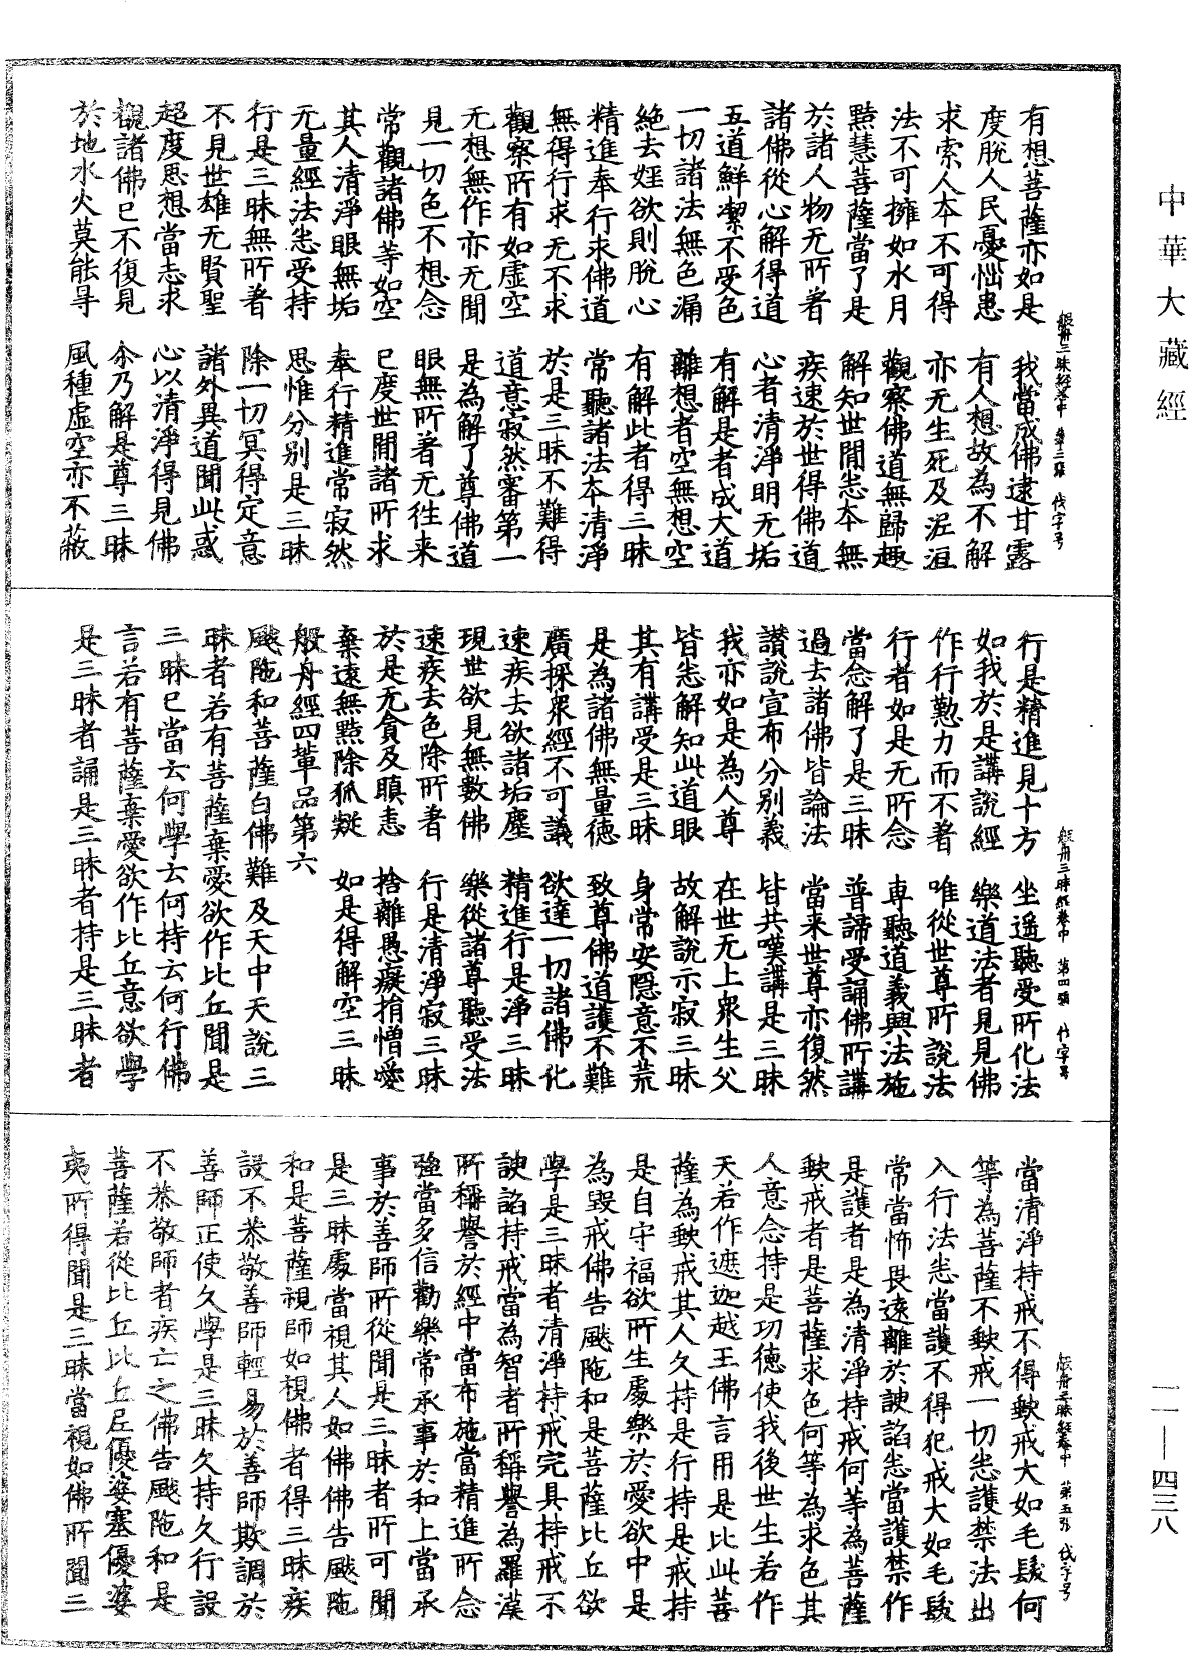 中華大藏經
有想菩薩亦如是　我當成佛逮甘露
度脫人民憂惱患　有人想故為不解
求索人本不可得　亦无生死及泥洹
法不可擁如水月　觀察佛道無歸趣
黠慧菩薩當了是　解知世間悉本無
於諸人物无所著　疾速於世得佛道
諸佛從心解得道　心者清淨明无垢
五道鮮潔不受色　有解是者成大道
一切諸法無色漏　離想者空無想空
絶去婬欲則脫心　有解此者得三昧
精進奉行求佛道　常聽諸法本清淨
無得行求无不求　於是三昧不難得
觀察所有如虛空　道意寂然審第一
无想無作亦无聞　是為解了尊佛道
見一切色不想念　眼無所著无往来
常觀諸佛等如空　已度世間諸所求
其人清淨眼無垢　奉行精進常寂然
无量經法悉受持　思惟分别是三昧
行是三昧無所著　除一切冥得定意
不見世雄无賢聖　諸外異道聞此惑
超度思想當志求　心以清淨得見佛
覩諸佛已不復見　尒乃解是尊三昧
於地水火莫能㝵　風種虛空亦不蔽
般舟三昧經卷中　第三張　伐字号
行是精進見十方　坐遥聽受所化法
如我於是講說經　樂道法者見見佛
作行懃力而不著　唯從世尊所說法
行者如是无所念　専聽道義興法施
當念解了是三昧　普諦受誦佛所講
過去諸佛皆論法　當来世尊亦復然
讃說宣布分别義　皆共嘆講是三昧
我亦如是為人尊　在世无上眾生父
皆悉解知此道眼　故解說示寂三昧
其有講受是三昧　身常安隱意不荒
是為諸佛無量德　致尊佛道護不難
廣採眾經不可議　欲達一切諸佛化
速疾去欲諸垢塵　精進行是淨三昧
現世欲見無數佛　樂從諸尊聽受法
速疾去色除所著　行是清淨寂三昧
於是无貪及瞋恚　捨離愚癡捐憎愛
棄遠無黠除狐疑　如是得解空三昧
般舟經四輩品第六
颰陁和菩薩白佛難及天中天說三
昧者若有菩薩棄愛欲作比丘聞是
三昧已當云何學云何持云何行佛
言若有菩薩棄愛欲作比丘意欲學
是三昧者誦是三昧者持是三昧者
般舟三昧經卷中　第四張　伐字号
當清淨持戒不得缺戒大如毛髮何
等為菩薩不缺戒一切悉護禁法出
入行法悉當護不得犯戒大如毛髮
常當怖畏遠離於諛諂悉當護禁作
是護者是為清淨持戒何等為菩薩
缺戒者是菩薩求色何等為求色其
人意念持是功德使我後世生若作
天若作遮迦越王佛言用是比此菩
薩為缺戒其人久持是行持是戒持
是自守福欲所生處樂於愛欲中是
為毀戒佛告颰陁和是菩薩比丘欲
學是三昧者清淨持戒完具持戒不
諛諂持戒當為智者所稱譽為羅漢
所稱譽於經中當布施當精進所念
強當多信勸樂常承事於和上當承
事於善師所從聞是三昧者所可聞
是三昧處當視其人如佛佛告颰陁
和是菩薩視師如視佛者得三昧疾
設不恭敬善師輕易於善師欺調於
善師正使久學是三昧久持久行設
不恭敬師者疾亡之佛告颰陁和是
菩薩若從比丘比丘尼優婆塞優婆
夷所得聞是三昧當視如佛所聞三
般舟三昧經卷中　第五張　伐字号
一一—四三八